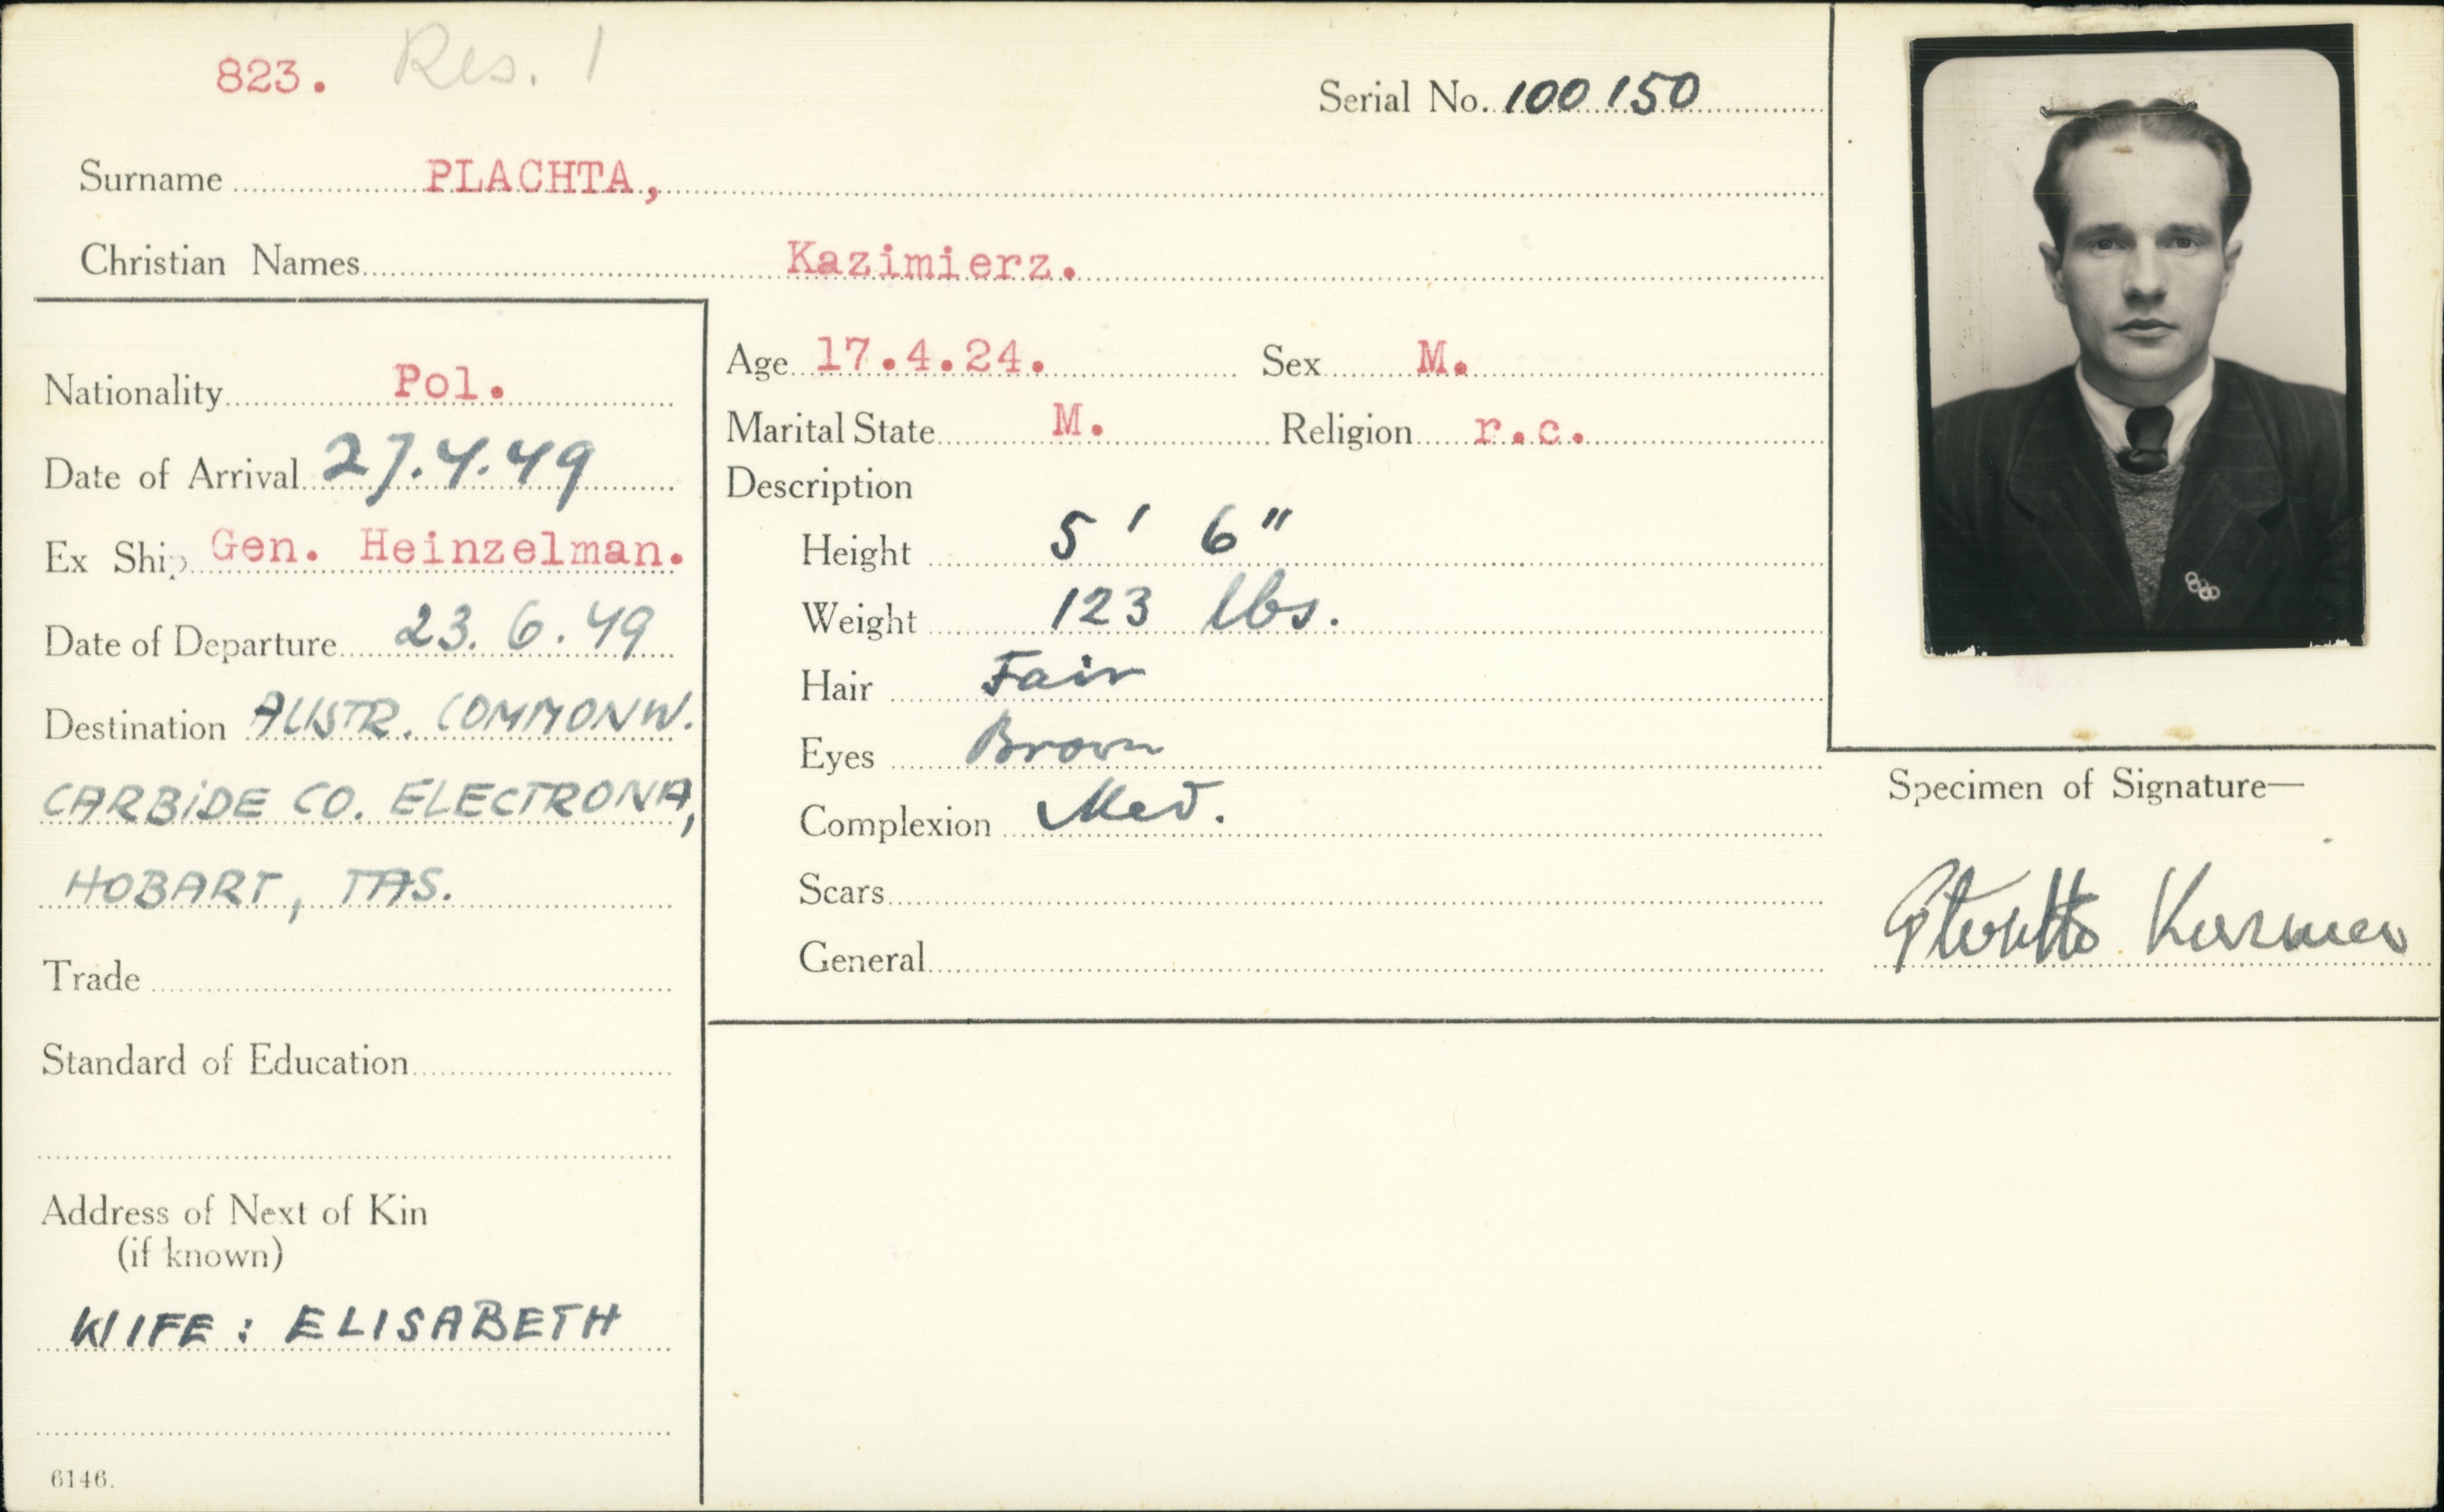 823. Res. 1
Serial No. 100150
Surname PLACHTA,
Christian Names Kazimierz.
Nationality Pol.
Date of Arrival 27.4.49
Ex Ship Gen. Heinzelman.
Date of Departure 23.6.49
Destination AUSTR. COMMONW.
CARBIDE CO. ELECTRONA,
HOBART, TAS.
Trade
Standard of Education
Address of Next of Kin
(if known)
WIFE: ELISABETH
6146.
Age 17.4.24. Sex M.
Marital State M. Religion r.c.
Description
Height 5' 6"
Weight 123 lbs.
Hair Fair
Eyes Brown
Complexion Med.
Scars
General
Specimen of Signature—